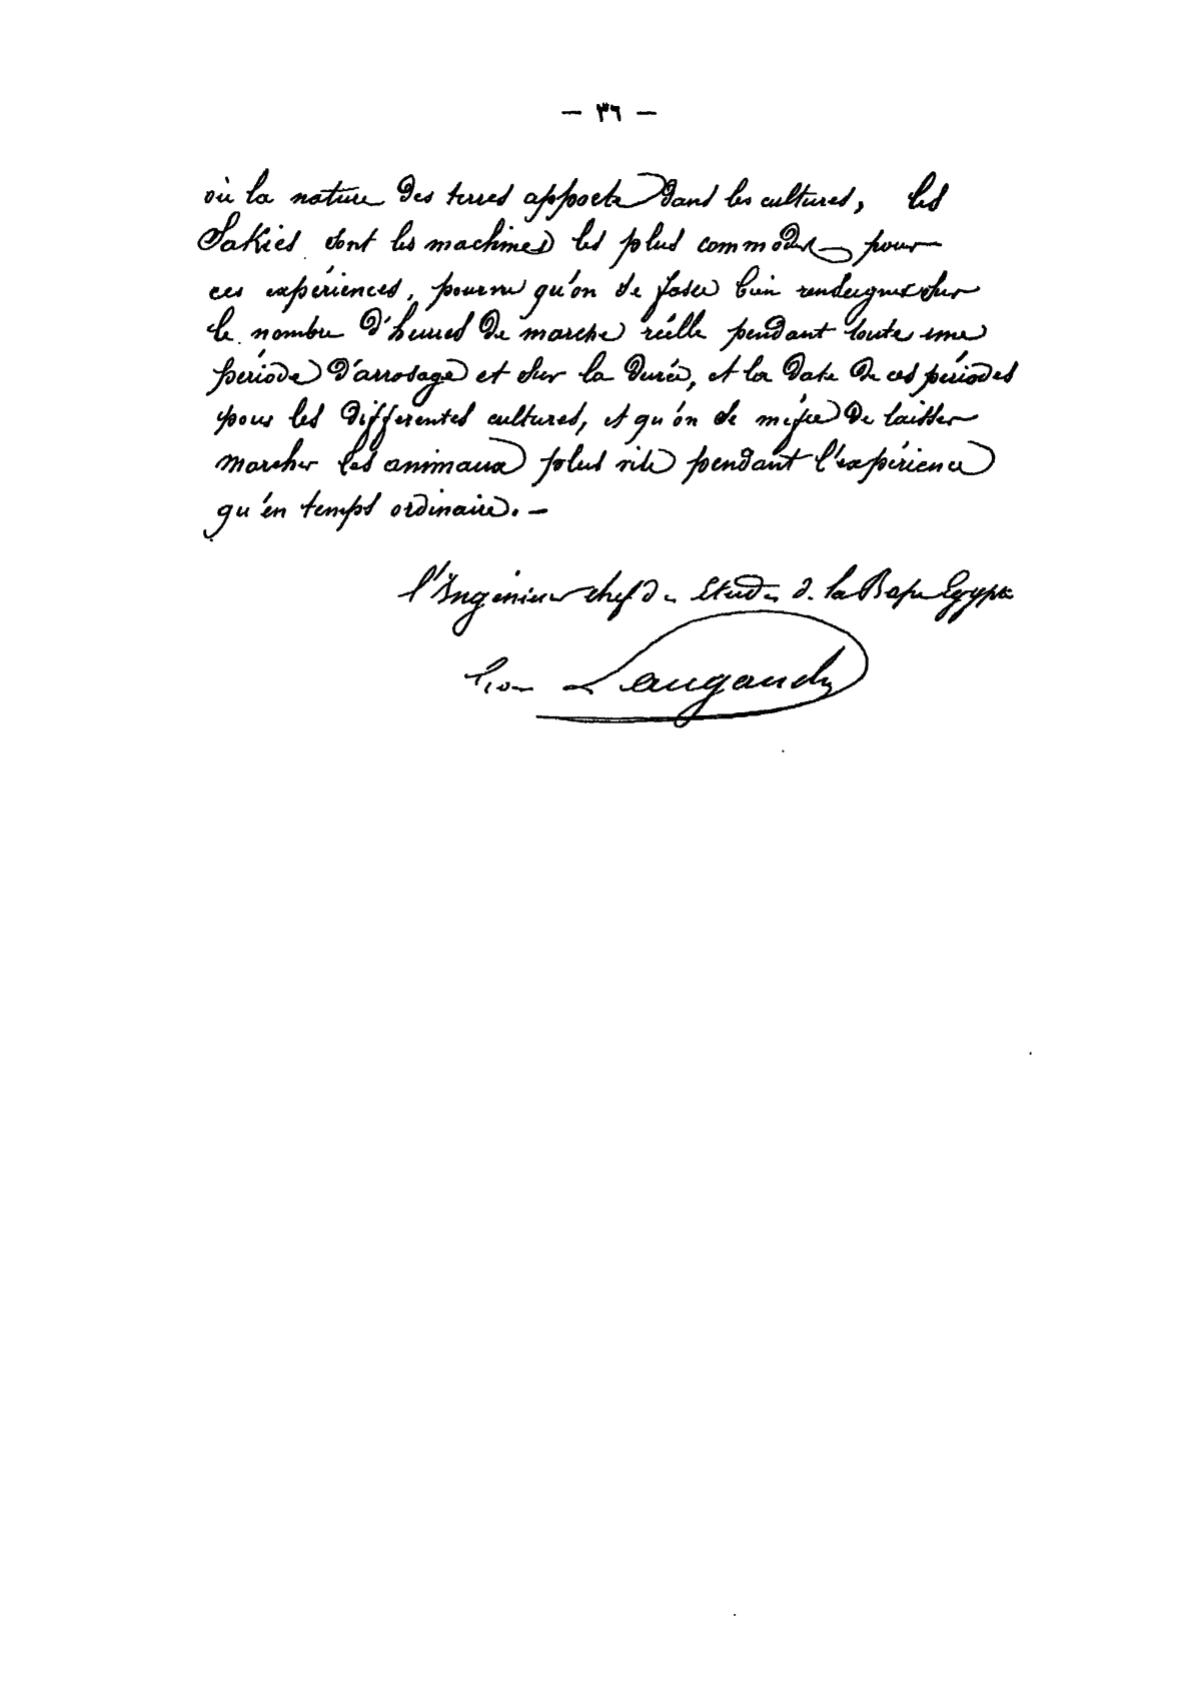 — ٣٦ —
où la nature des terres apporte dans les cultures, les
Sakiés sont les machines les plus commodes pour
ces expériences, pourvu qu'on se fasse bien renseigner sur
le nombre d'heures de marche réelle pendant toute une
période d'arrosage et sur la durée, et la date de ces périodes
pour les différentes cultures, et qu'on se méfie de laisser
marcher les animaux plus vite pendant l'expérience
qu'en temps ordinaire. —
l'Ingénieur chef des Etudes de la Basse Egypte